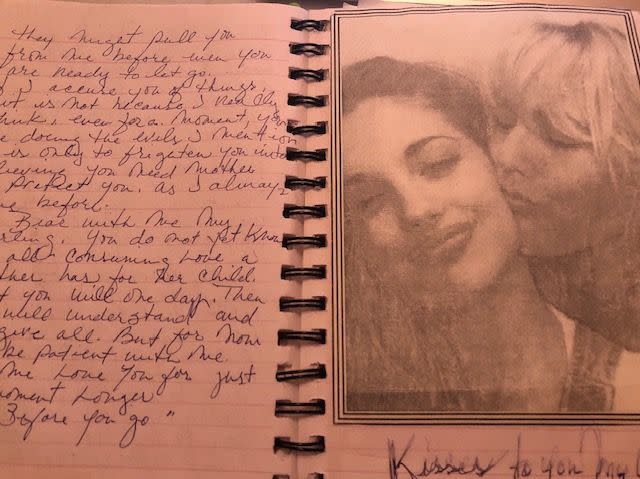 they might pull you
from me before even you
are ready to let go.
I accuse you of things,
is not because I really
think, even for a moment, you
doing the evils I mention
is only to frighten you into
you need Mother
Protect you. as I always
before.
Bear with me my
You do not yet know
all consuming Love a
has for Her child.
you will one day. Then
will understand and
all. But for now
be patient with me
me Love You for just
moment Longer
Before you go"
Kisses to you My